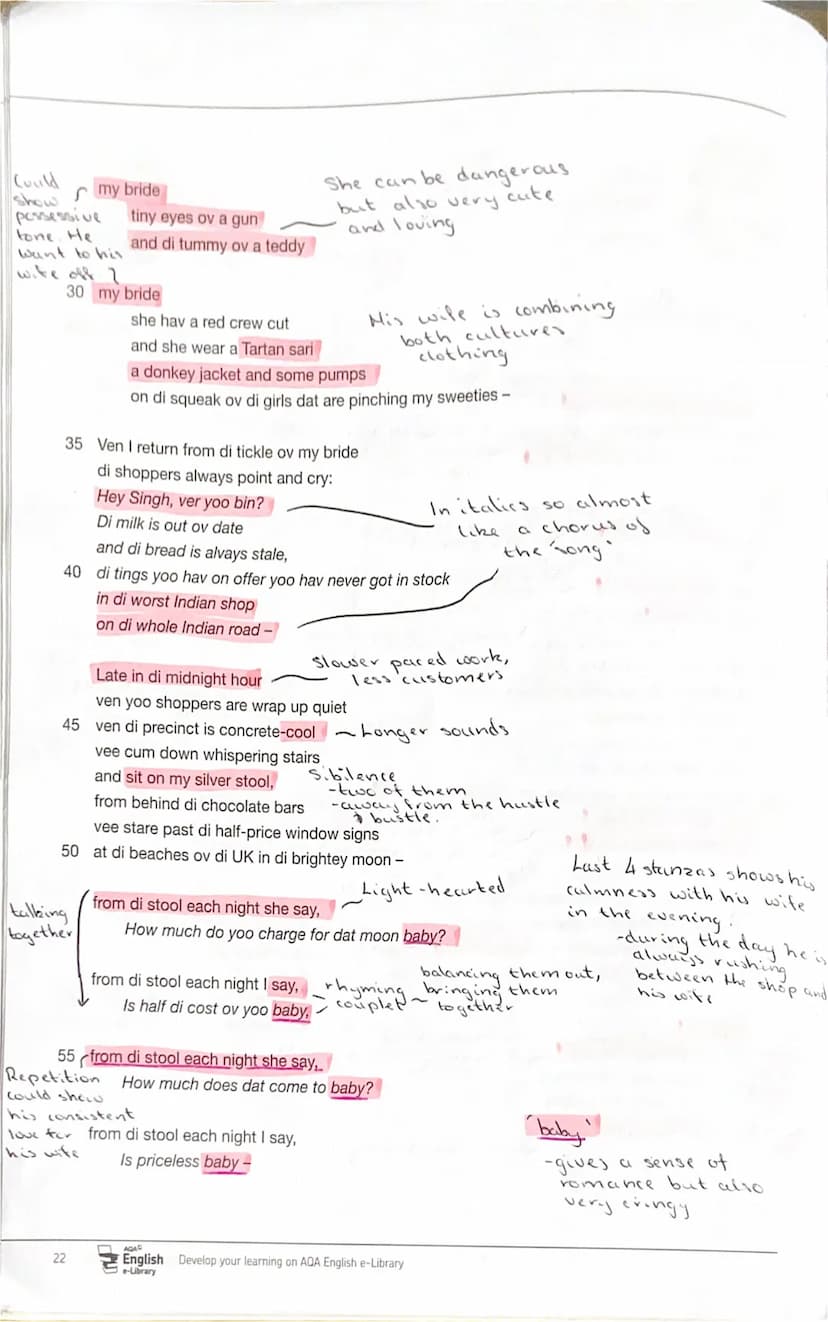 Could
show
possessive
tone. He
want to his
wife off ?
my bride
tiny eyes ov a gun
and di tummy ov a teddy
She can be dangerous
but also very cute
and loving
30 my bride
she hav a red crew cut
and she wear a Tartan sari
a donkey jacket and some pumps
on di squeak ov di girls dat are pinching my sweeties –
His wife is combining
both cultures
clothing
35 Ven I return from di tickle ov my bride
di shoppers always point and cry:
Hey Singh, ver yoo bin?
Di milk is out ov date
and di bread is alvays stale,
40 di tings yoo hav on offer yoo hav never got in stock
in di worst Indian shop
on di whole Indian road –
In italics so almost
like a chorus of
the 'song'
Late in di midnight hour
ven yoo shoppers are wrap up quiet
45 ven di precinct is concrete-cool
vee cum down whispering stairs
and sit on my silver stool,
from behind di chocolate bars
vee stare past di half-price window signs
50 at di beaches ov di UK in di brightey moon –
slower paced work,
less customers
Longer sounds
Sibilence
-two of them
-away from the hustle
& bustle.
talking
together
from di stool each night she say,
How much do yoo charge for dat moon baby?
Light-hearted
from di stool each night I say,
Is half di cost ov yoo baby,
rhyming
couplet
balancing them out,
bringing them
together
Last 4 stanzas shows his
calmness with his wife
in the evening.
-during the day he is
always rushing
between the shop and
his wife
55 from di stool each night she say,
How much does dat come to baby?
from di stool each night I say,
Is priceless baby –
Repetition
could show
his consistent
love for
his wife
'baby'
-gives a sense of
romance but also
very cringy
22 AQA English e-Library Develop your learning on AQA English e-Library